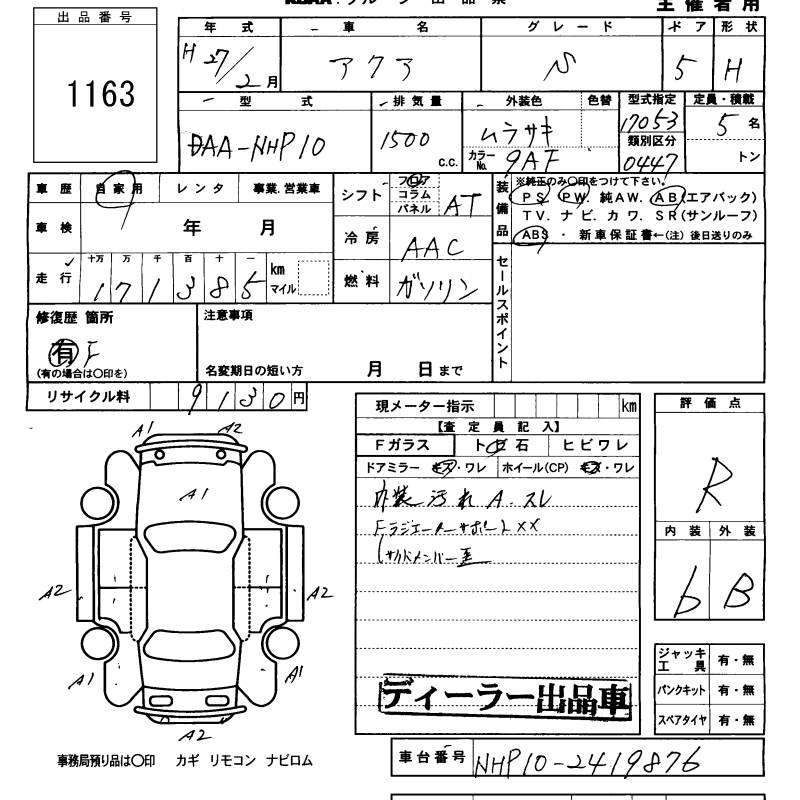 主催者用
出品番号
1163
年式 車名 グレード ドア 形状
H27/2月 アクア S 5 H
型式 排気量 外装色 色替 型式指定 定員・積載
DAA-NHP10 1500 c.c. ムラサキ 17053 5名
カラーNo. 9AF 類別区分 0447 トン
車歴 自家用 レンタ 事業.営業車
シフト フロア コラム パネル AT
装備品 ※純正のみ〇印をつけて下さい。
PS. PW. 純AW. AB(エアバック)
TV. ナビ. カワ. SR(サンルーフ)
ABS ・ 新車保証書←(注) 後日送りのみ
車検 年 月
冷房 AAC
走行 十万 万 千 百 十 一
171385 km マイル
燃料 ガソリン
セールスポイント
修復歴 箇所
有 F
(有の場合は〇印を)
注意事項
名変期日の短い方 月 日まで
リサイクル料 9130円
現メーター指示 km
【査定員記入】
Fガラス トビ石 ヒビワレ
ドアミラー キズ・ワレ ホイール(CP) キズ・ワレ
内装汚れA.スレ
FラジエーターサポートXX
評価点
R
内装 外装
b B
A1 A2
A1
A2 A2
A1 A1
A2
ジャッキ工具 有・無
パンクキット 有・無
スペアタイヤ 有・無
ディーラー出品車
事務局預り品は〇印 カギ リモコン ナビロム
車台番号 NHP10-2419876